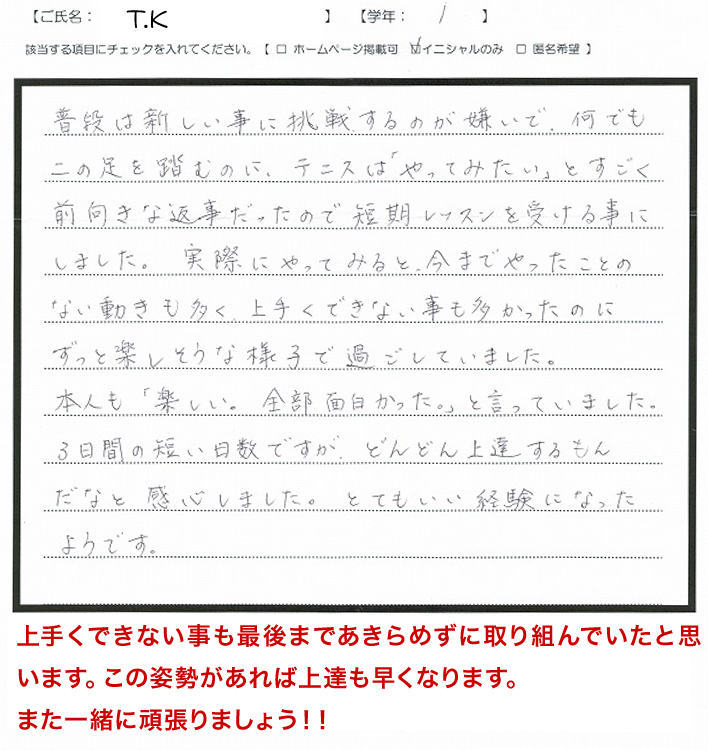 【ご氏名： T.K 】【学年： 1 】
該当する項目にチェックを入れてください。【 □ ホームページ掲載可 ☑イニシャルのみ □ 匿名希望 】
普段は新しい事に挑戦するのが嫌いで、何でも
二の足を踏むのに、テニスは「やってみたい」とすごく
前向きな返事だったので短期レッスンを受ける事に
しました。 実際にやってみると、今までやったことの
ない動きも多く、上手くできない事も多かったのに
ずっと楽しそうな様子で過ごしていました。
本人も「楽しい。全部面白かった。」と言っていました。
3日間の短い日数ですが、どんどん上達するもん
だなと感心しました。とてもいい経験になった
ようです。
上手くできない事も最後まであきらめずに取り組んでいたと思
います。この姿勢があれば上達も早くなります。
また一緒に頑張りましょう！！